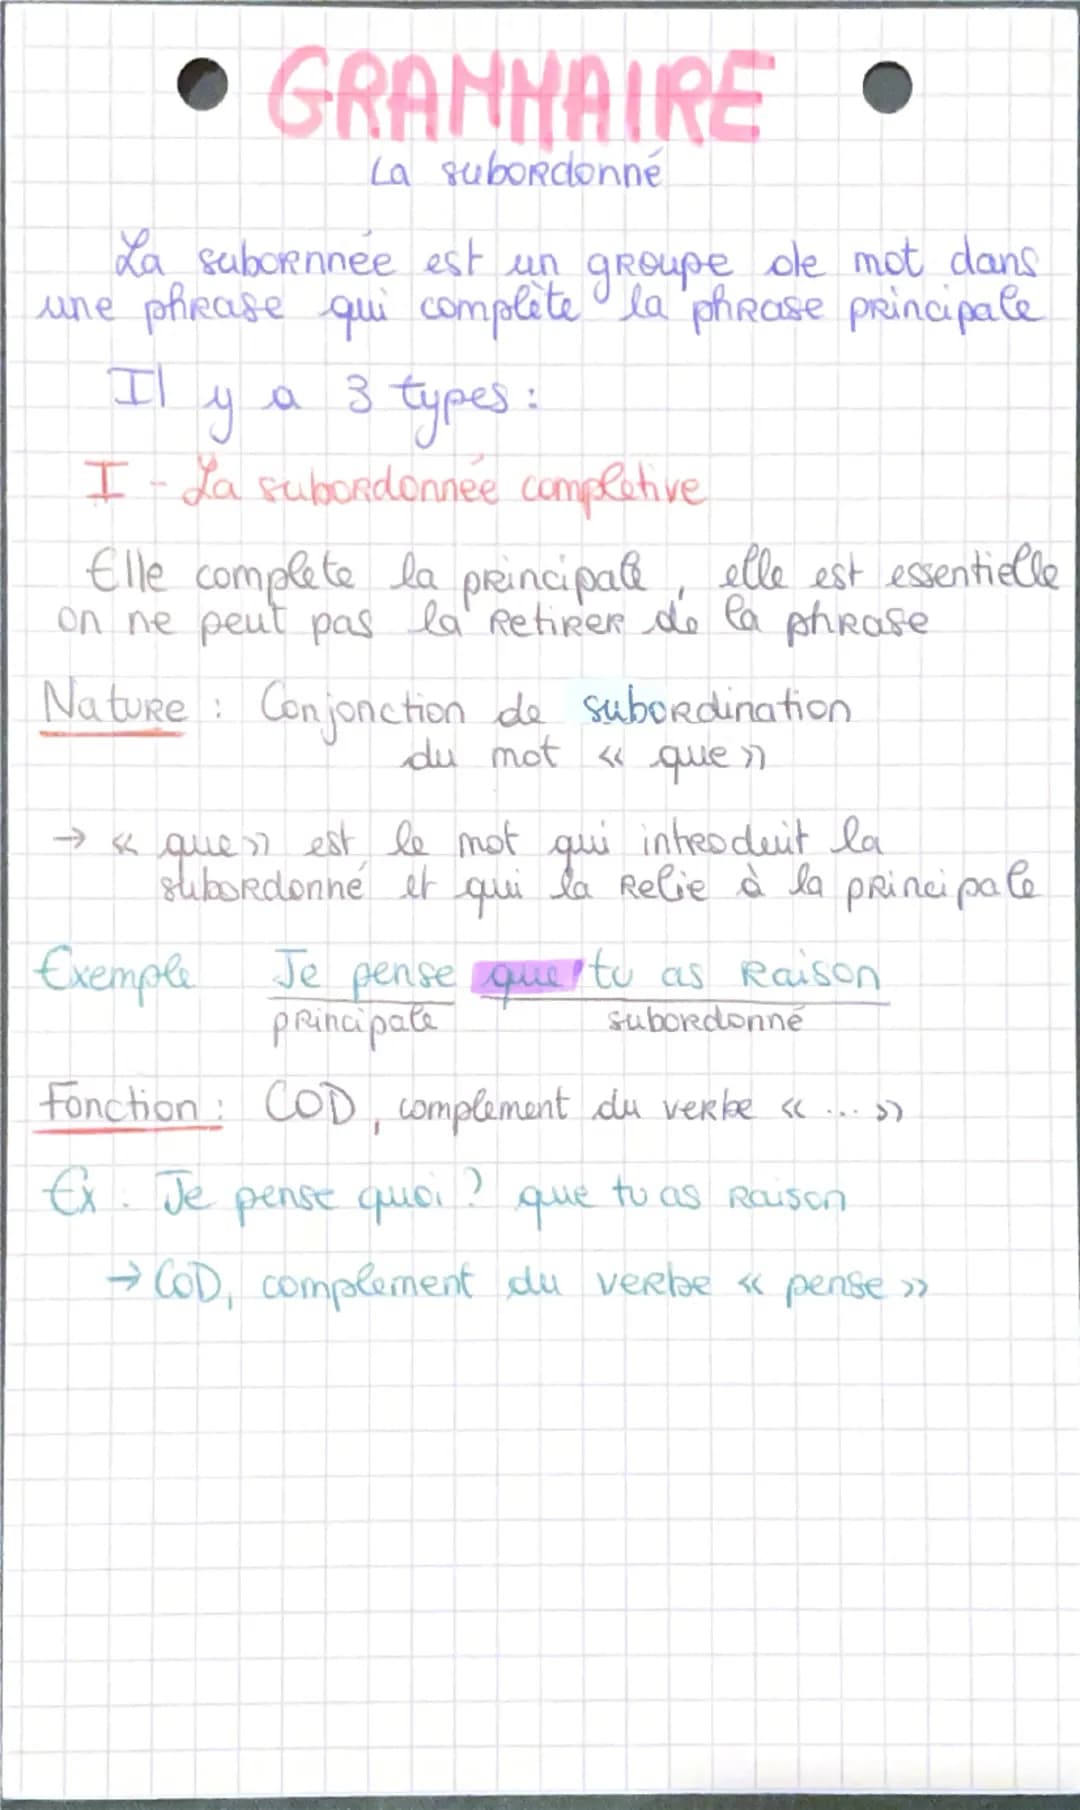 GRAMMAIRE
La subordonné
La subornnée est un groupe de mot dans
une phrase qui complète la phrase principale
Il y a 3 types :
I - La subordonnée complétive
Elle complete la principale, elle est essentielle
on ne peut pas la retirer de la phrase
Nature : Conjonction de subordination
du mot « que »
→ « que » est le mot qui introduit la
subordonné et qui la relie à la principale
Exemple Je pense que tu as raison
principale subordonné
Fonction : COD, complement du verbe « ... »
Ex : Je pense quoi ? que tu as raison
→ COD, complement du verbe « pense »